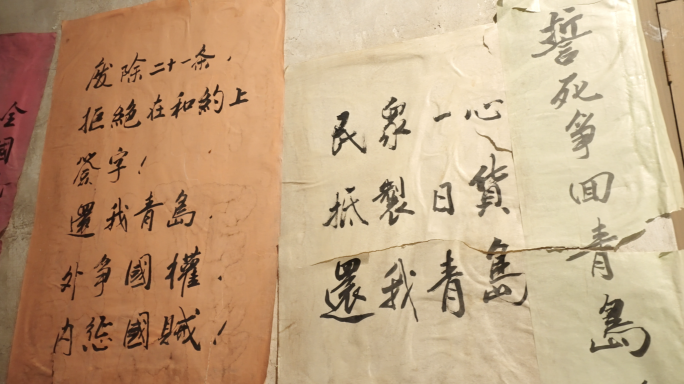 全國
廢除二十一条,
拒絕在和約上
簽字!
還我青島.
外争國權.
内惩國賊!
民衆一心
抵製日貨
還我青島
誓死争回青島